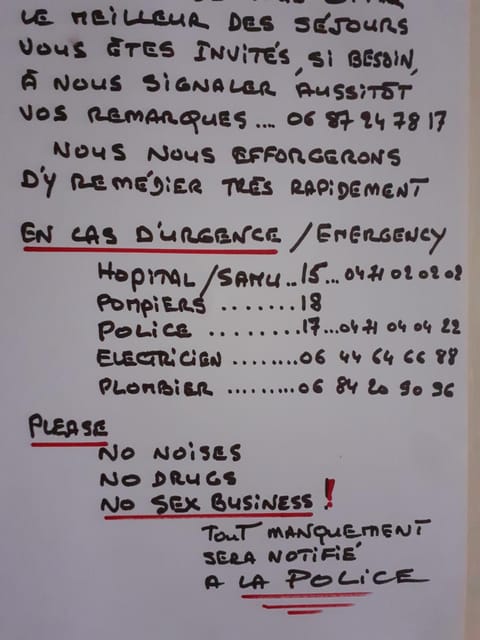 LE MEILLEUR DES SÉJOURS
VOUS ÊTES INVITÉS, SI BESOIN,
À NOUS SIGNALER AUSSITÔT
VOS REMARQUES... 06 87 24 78 17
NOUS NOUS EFFORCERONS
D'Y REMÉDIER TRÈS RAPIDEMENT
EN CAS D'URGENCE / EMERGENCY
HOPITAL/SAMU..15...04 71 02 02 02
POMPIERS .......18
POLICE .........17...04 71 04 04 22
ELECTRICIEN ........06 44 64 66 88
PLOMBIER .........06 84 20 90 96
PLEASE
NO NOISES
NO DRUGS
NO SEX BUSINESS !
TOUT MANQUEMENT
SERA NOTIFIÉ
A LA POLICE